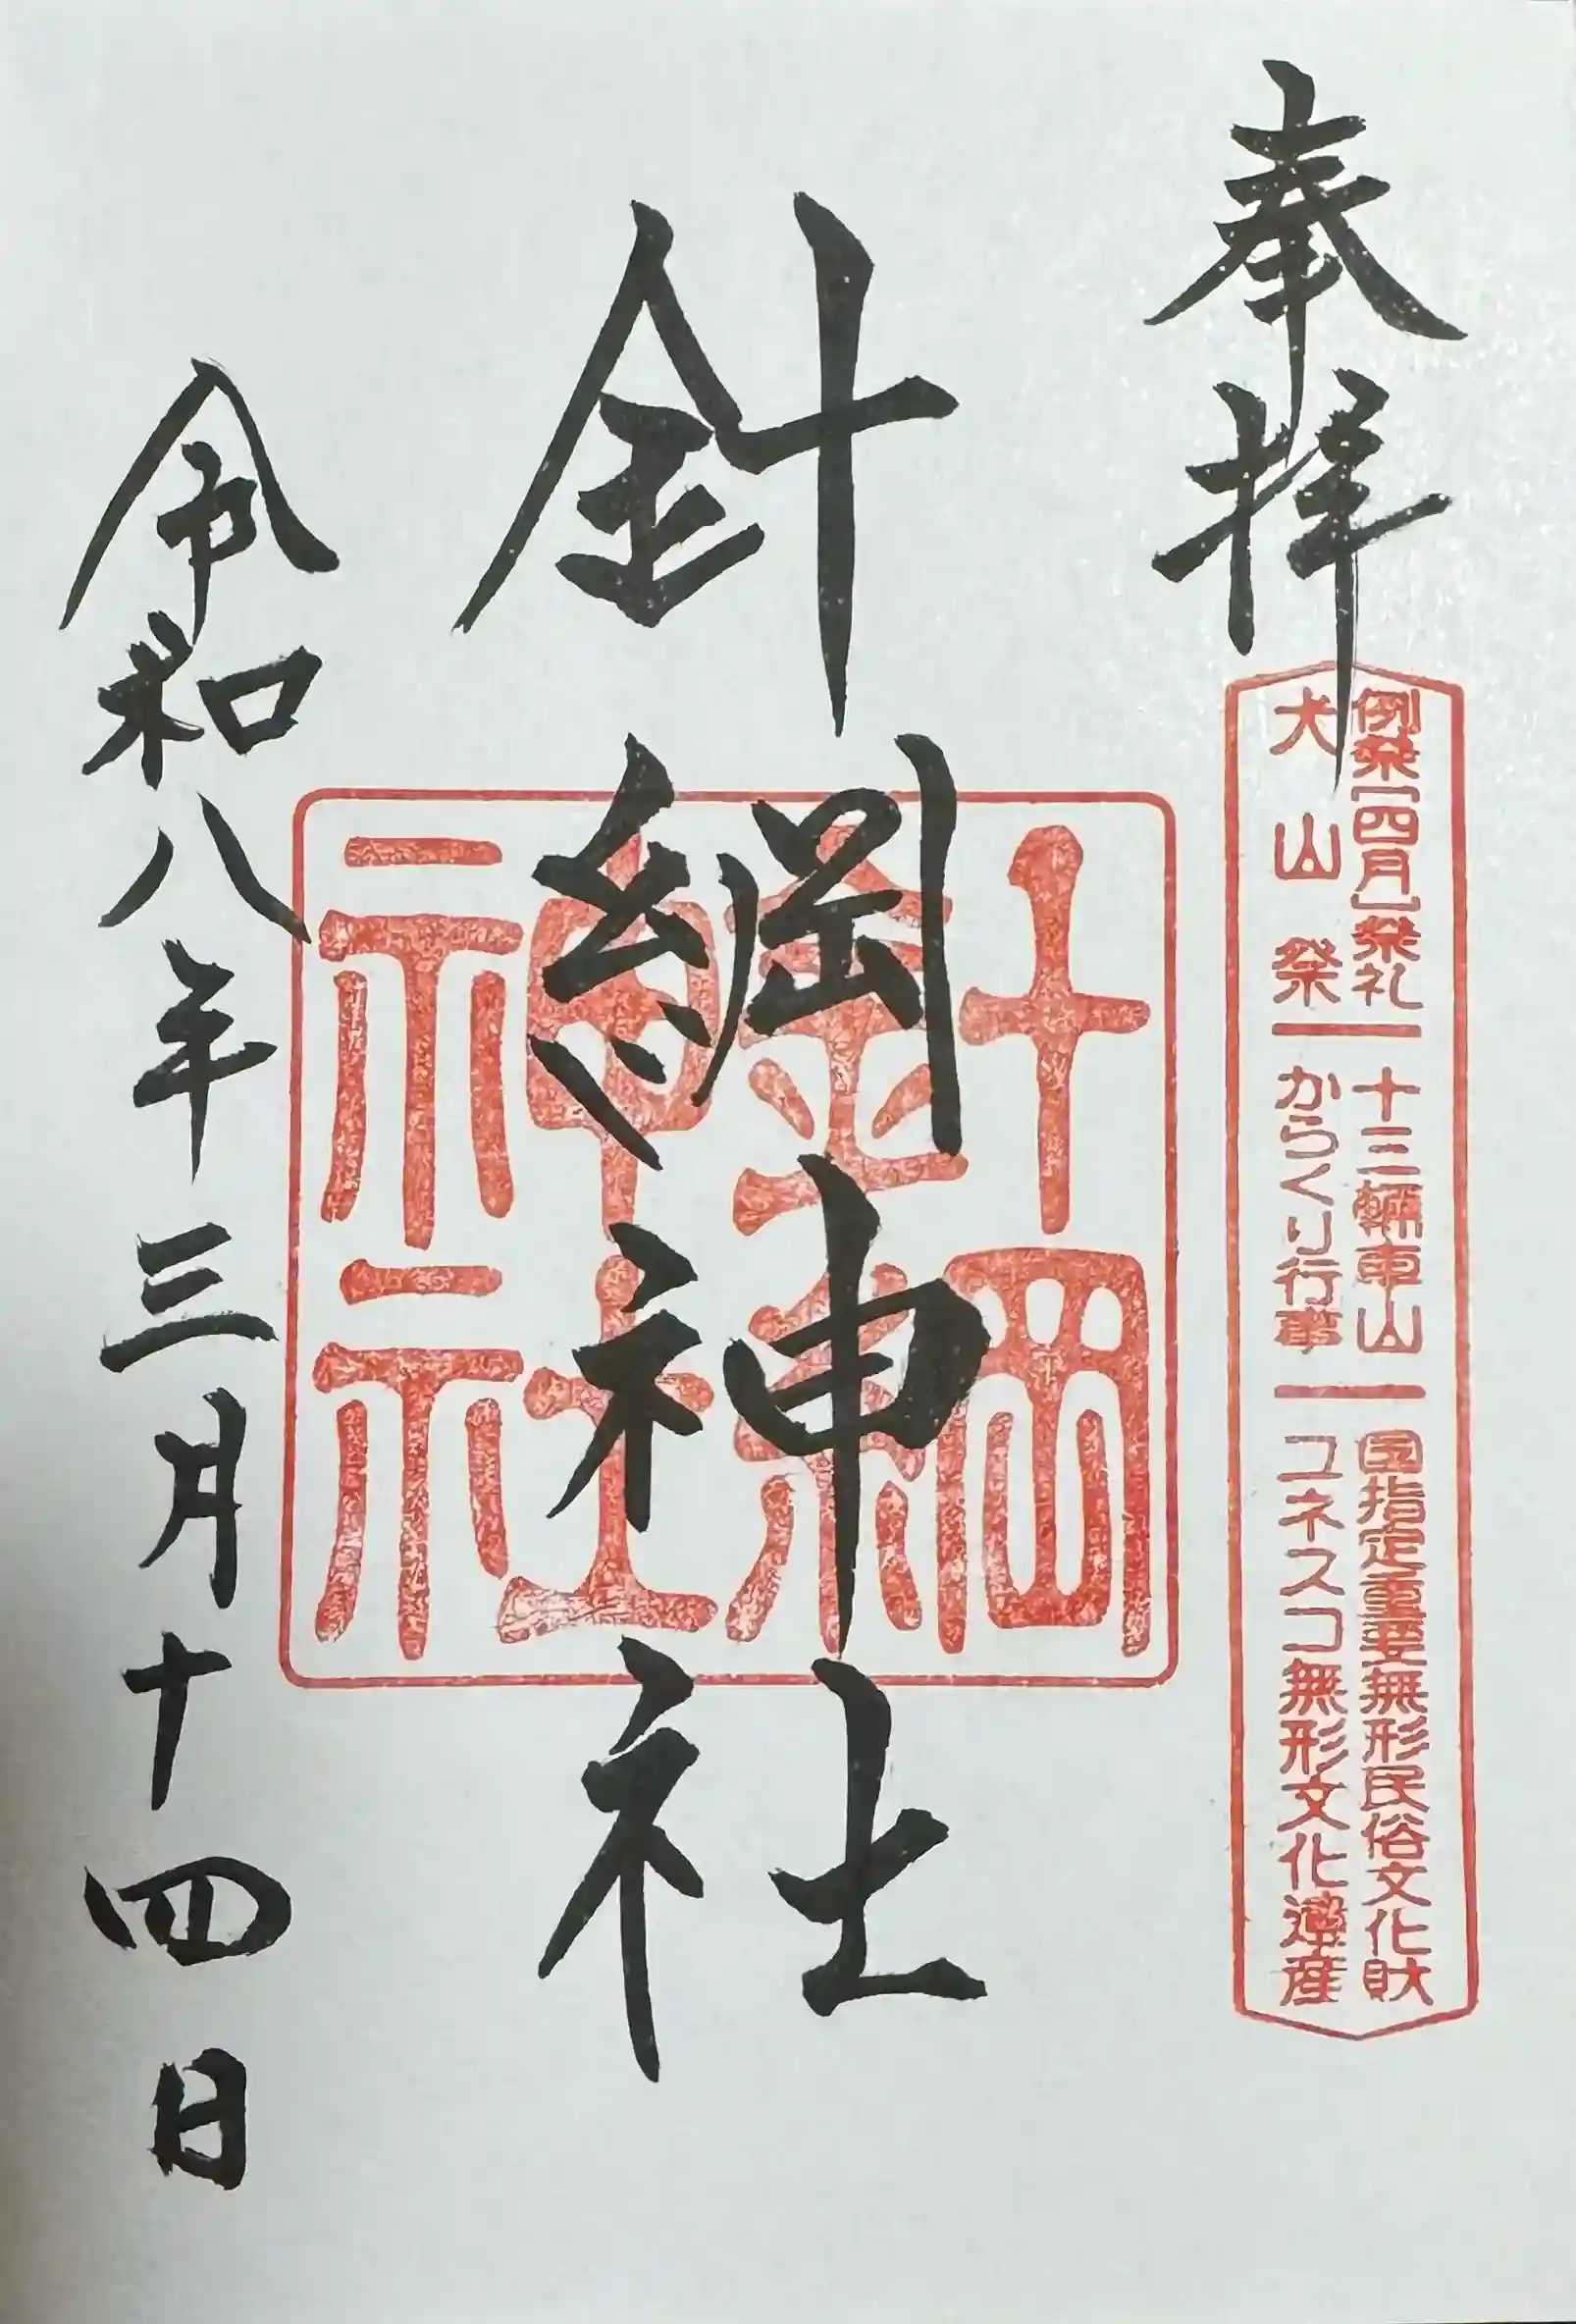 奉拝
例祭[四月]祭礼 十三輛車山 国指定重要無形民俗文化財
犬山祭 からくり行事 ユネスコ無形文化遺産
針綱神社
針綱
神社
令和八年三月十四日